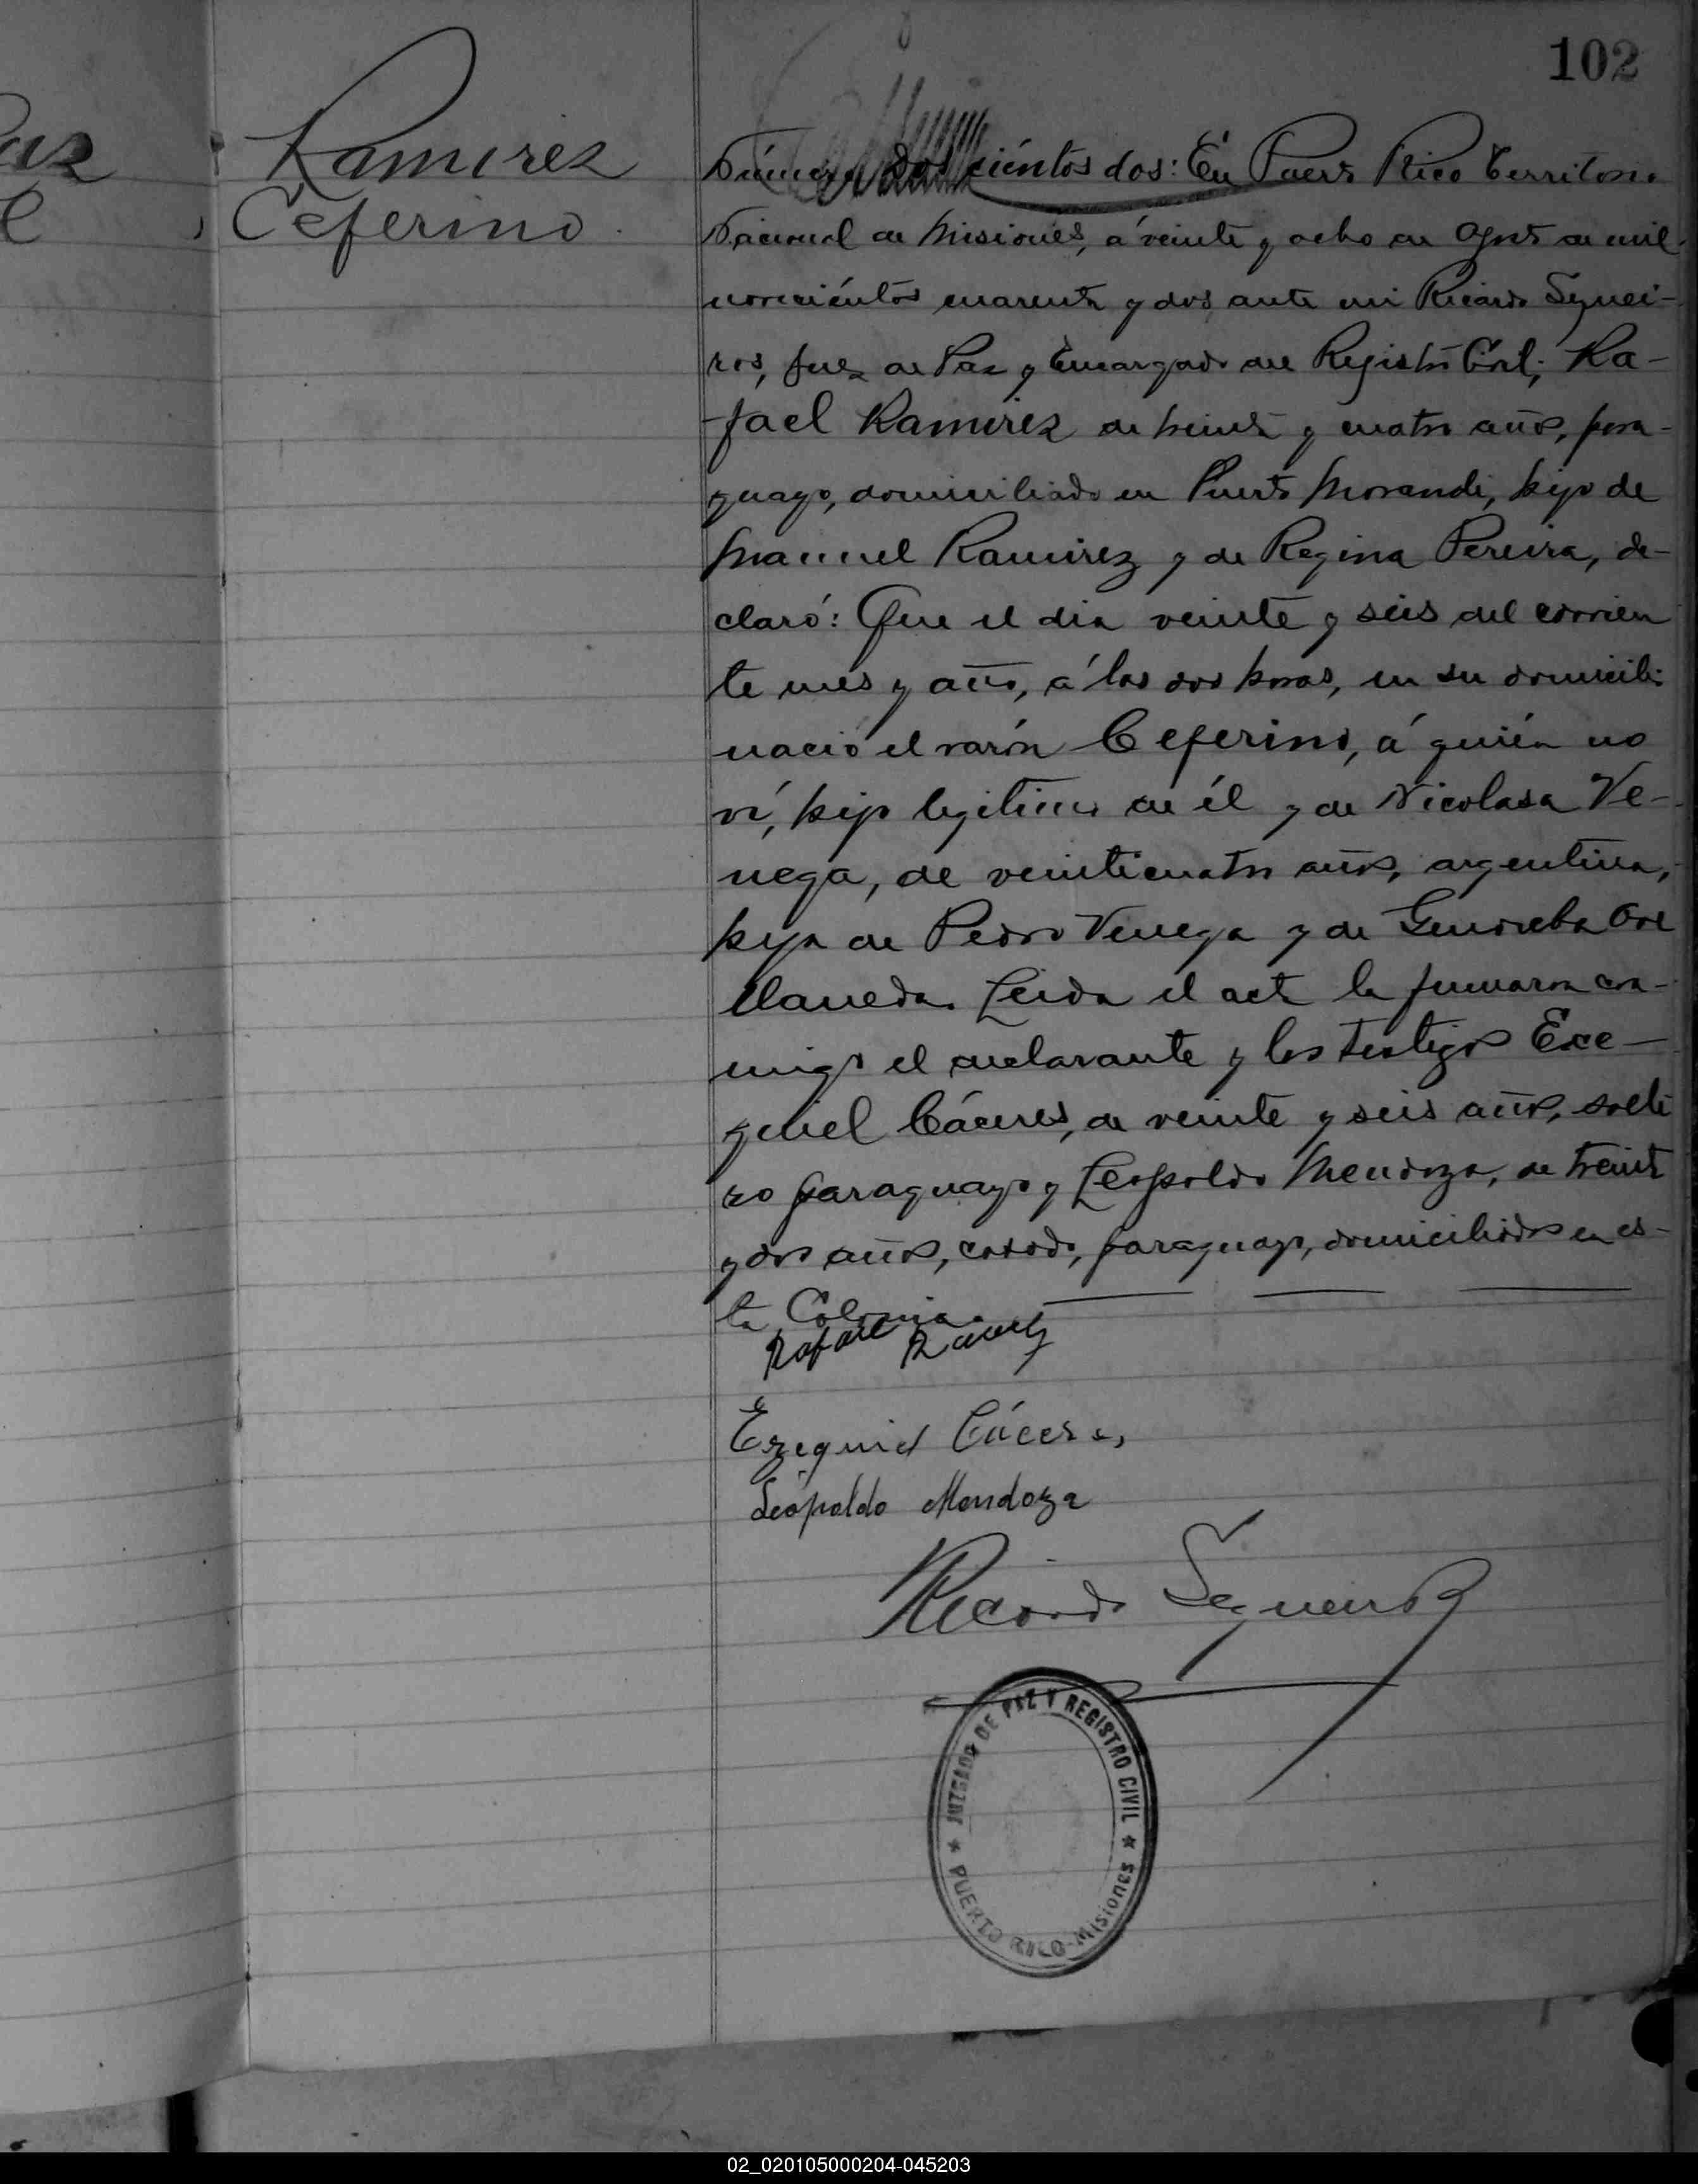 102
Ramirez
Ceferino
Número dos cientos dos: En Puerto Rico Territorio
Nacional de Misiones, á veinte y ocho de Agosto de mil
novecientos cuarenta y dos, ante mi Ricardo Seguei-
ros, Juez de Paz y Encargado del Registro Civil; Ra-
fael Ramirez de treinta y cuatro años, para-
guayo, domiciliado en Puerto Morandi, hijo de
Manuel Ramirez y de Regina Pereira, de-
claró: Que el dia veinte y seis del corrien
te mes y año, á las dos horas, en su domicilio
nació el varón Ceferino, á quién no
ví, hijo legitimo de él y de Nicolasa Ve-
nega, de veinticuatro años, argentina,
hija de Pedro Venega y de Genoveba Ore
llaneda. Leida el acta la firmaron con-
migo el declarante y los testigos Exe-
quiel Cáceres, de veinte y seis años, solte
ro paraguayo y Leopoldo Mendoza, de treinta
y dos años, casado, paraguayo, domiciliados en es-
ta Colonia.
Rafael Ramirez
Ezequiel Cáceres
Leopoldo Mendoza
Ricardo Segueiros
JUZGADO DE PAZ Y REGISTRO CIVIL * PUERTO RICO-Misiones *
02_020105000204-045203